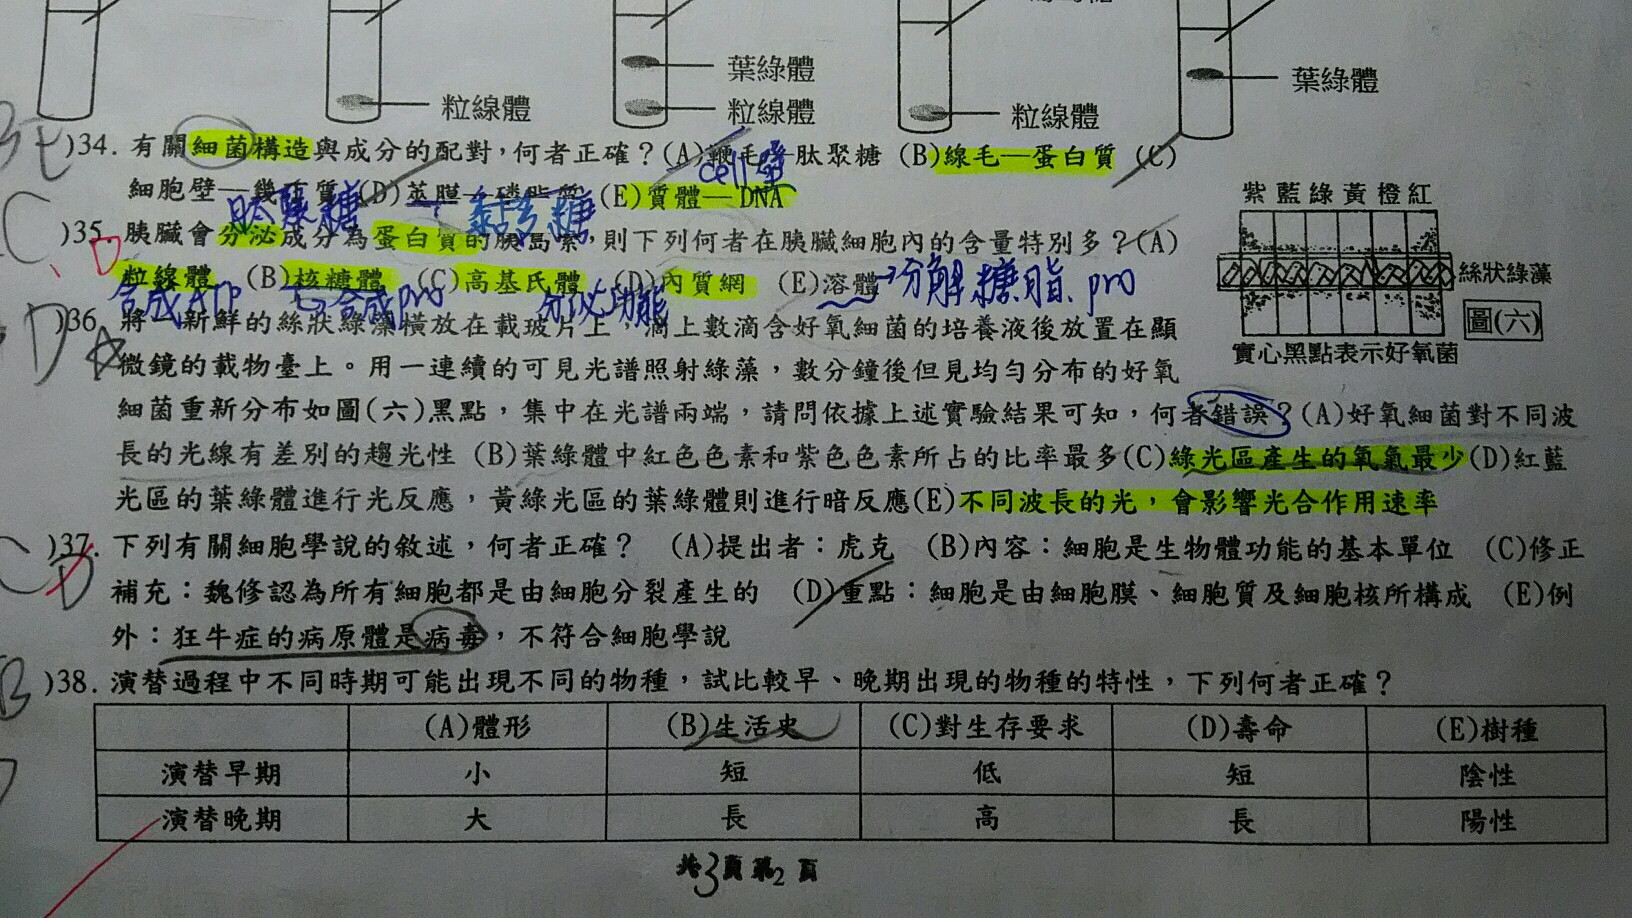 葉綠體
葉綠體
粒線體
粒線體
粒線體
BE )34. 有關細菌構造與成分的配對，何者正確？(A)鞭毛—肽聚糖 (B)線毛—蛋白質 (C)
cell壁
細胞壁—幾丁質 (D)莢膜—磷脂質 (E)質體—DNA
肽聚糖 → 黏多糖
C )35. 胰臟會分泌成分為蛋白質的胰島素，則下列何者在胰臟細胞內的含量特別多？(A)
、D
粒線體 (B)核糖體 (C)高基氏體 (D)內質網 (E)溶體→分解糖.脂. pro
合成ATP ↳合成pro 分泌功能
D )36. 將一新鮮的絲狀綠藻橫放在載玻片上，滴上數滴含好氧細菌的培養液後放置在顯
微鏡的載物臺上。用一連續的可見光譜照射綠藻，數分鐘後但見均勻分布的好氧
細菌重新分布如圖(六)黑點，集中在光譜兩端，請問依據上述實驗結果可知，何者錯誤？(A)好氧細菌對不同波
長的光線有差別的趨光性 (B)葉綠體中紅色色素和紫色色素所占的比率最多(C)綠光區產生的氧氣最少(D)紅藍
光區的葉綠體進行光反應，黃綠光區的葉綠體則進行暗反應(E)不同波長的光，會影響光合作用速率
紫藍綠黃橙紅
絲狀綠藻
圖(六)
實心黑點表示好氧菌
)37. 下列有關細胞學說的敘述，何者正確？ (A)提出者：虎克 (B)內容：細胞是生物體功能的基本單位 (C)修正
補充：魏修認為所有細胞都是由細胞分裂產生的 (D)重點：細胞是由細胞膜、細胞質及細胞核所構成 (E)例
外：狂牛症的病原體是病毒，不符合細胞學說
B )38. 演替過程中不同時期可能出現不同的物種，試比較早、晚期出現的物種的特性，下列何者正確？
(A)體形 (B)生活史 (C)對生存要求 (D)壽命 (E)樹種
演替早期 小 短 低 短 陰性
演替晚期 大 長 高 長 陽性
共3頁第2頁